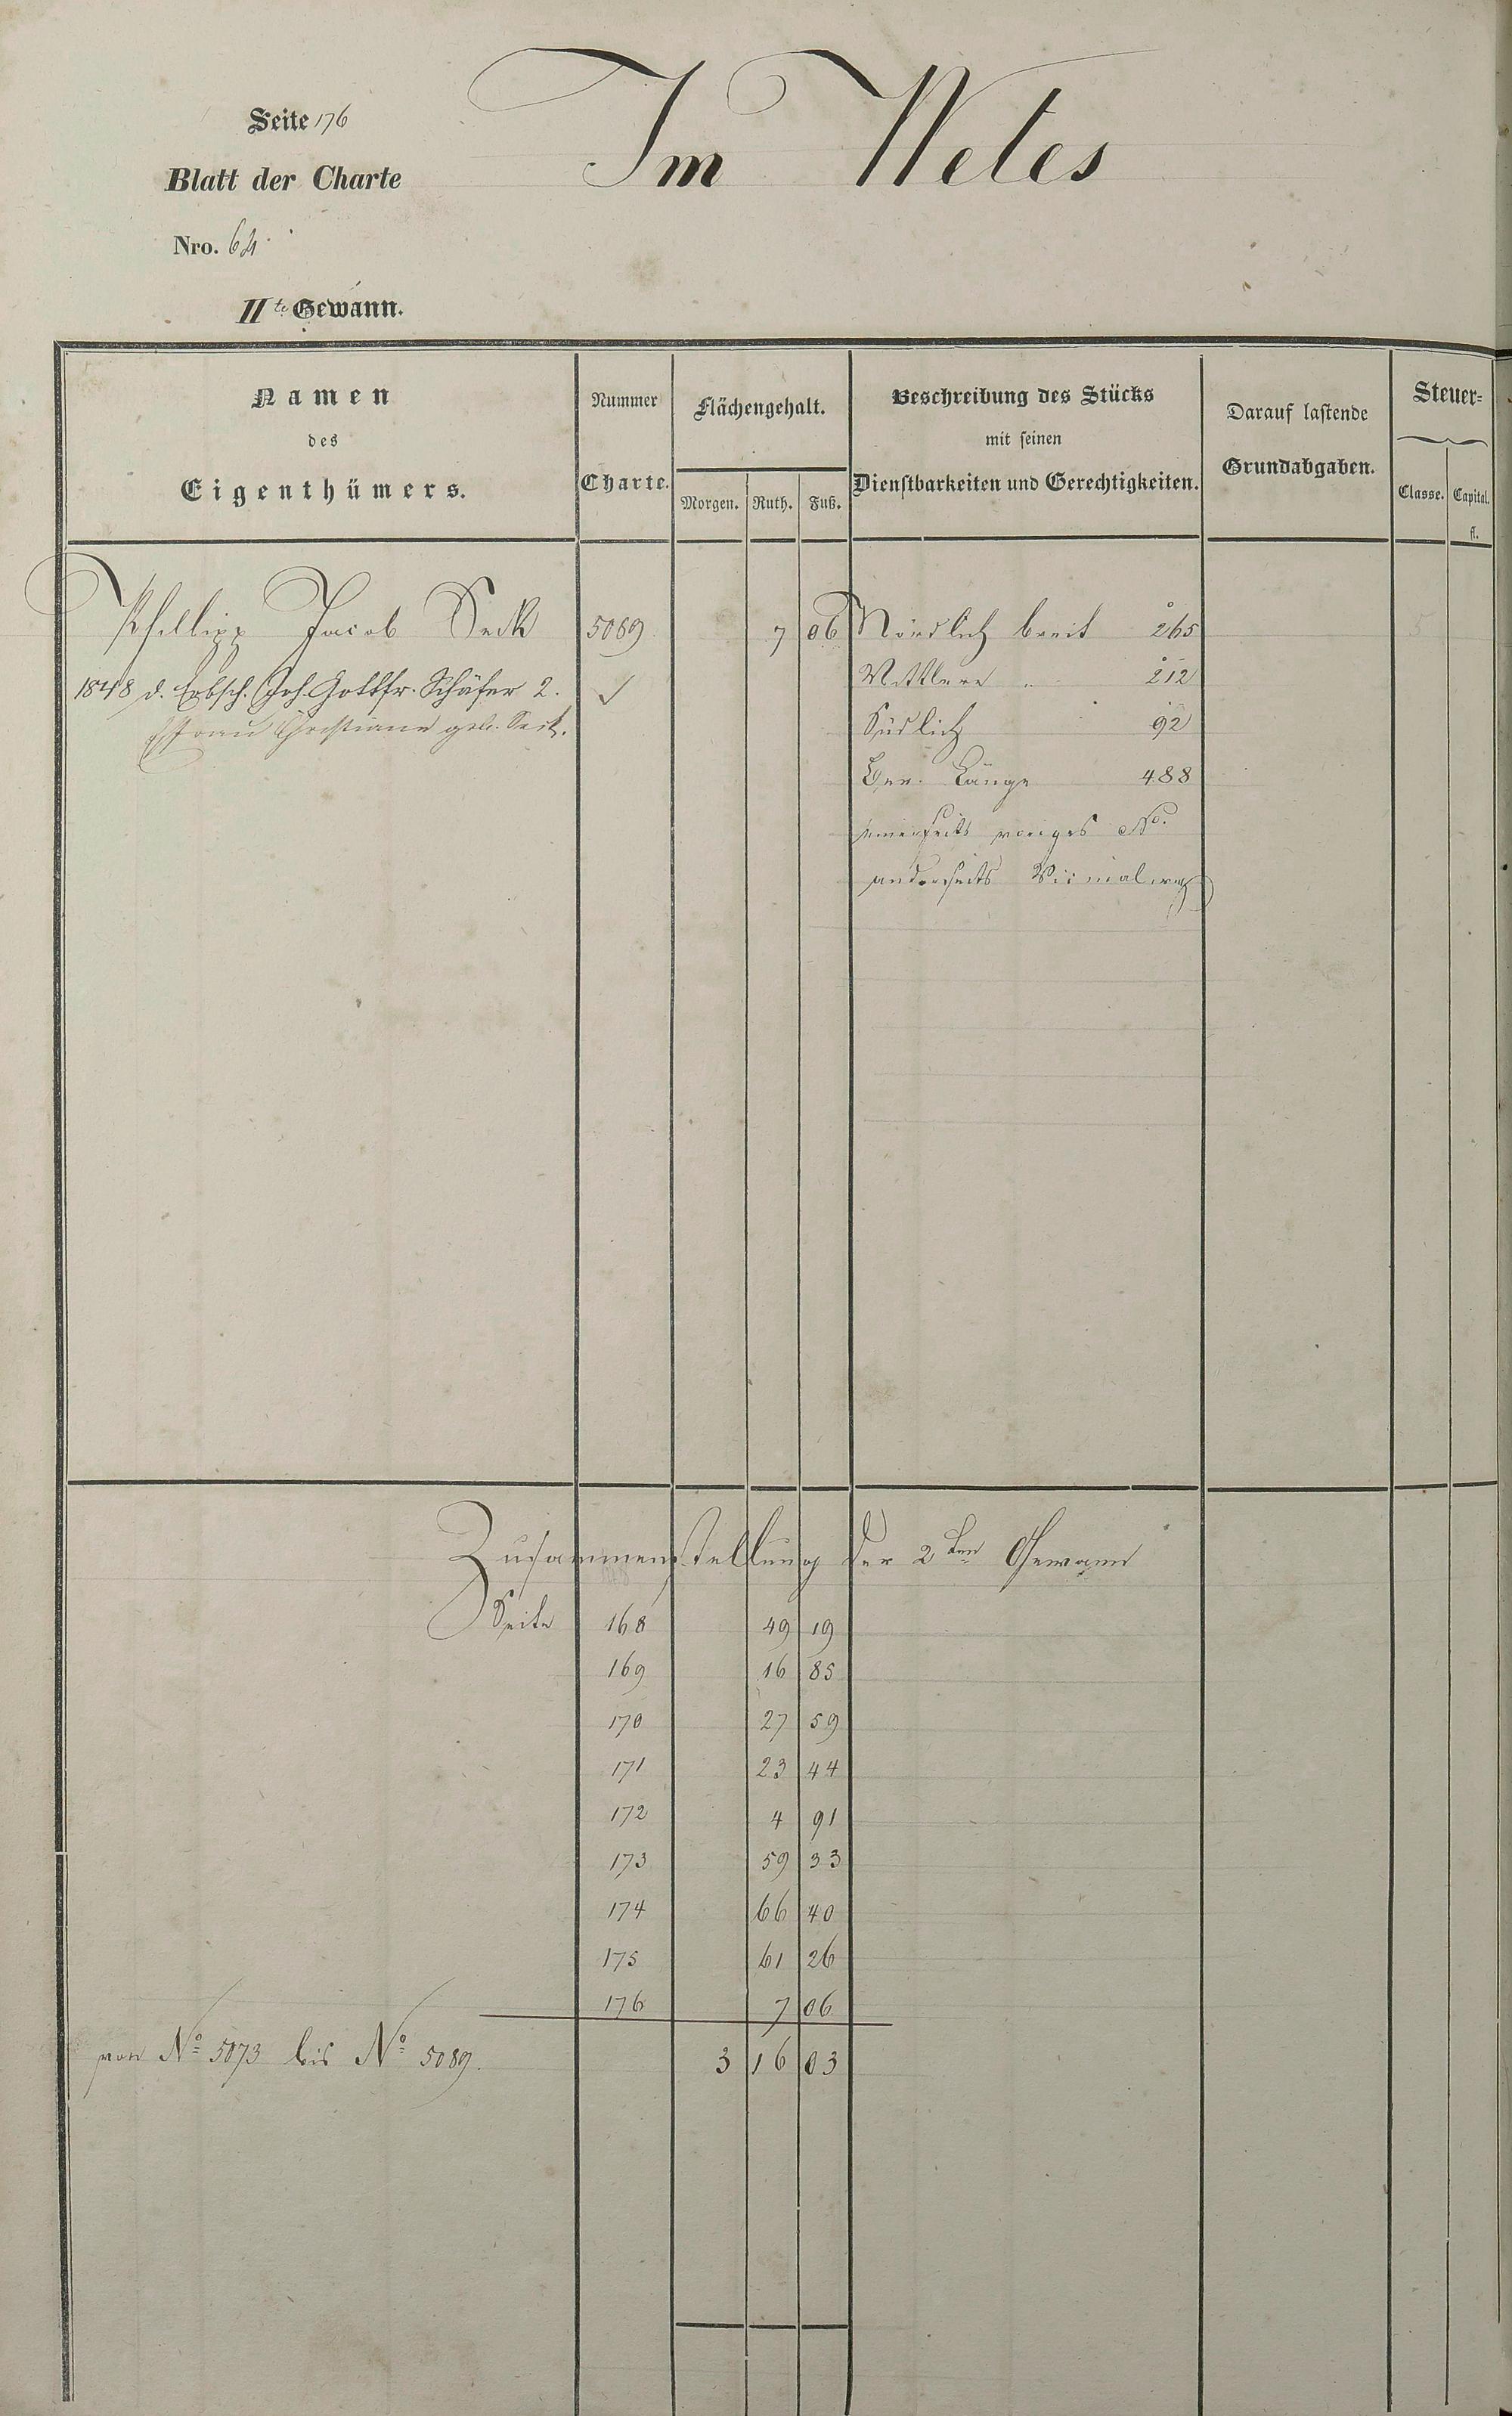 Im Wetes
Seite 176
Blatt der Charte
Nro. 64.
IIte Gewann.
Namen
des
Eigenthümers.
Nummer
Charte.
Flächengehalt.
Morgen. Ruth. Fuß.
Beschreibung des Stücks
mit seinen
Dienstbarkeiten und Gerechtigkeiten.
Darauf lastende
Grundabgaben.
Steuer=
Classe. Capital.
fl.
Phillipp Jacob Seck 5089 7 06 Nördlich breit 265
1848 d. Erbsch. Joh. Gottfr. Schäfer 2. ✓ Mittlere " 212
Efrau Christiane geb. Seck. Südlich 92
Ger. Länge 488
einerseits voriges No.
anderseits Vicinalweg
Zusammenstellung der 2ten Gewann
Seite 168 49 19
169 16 85
170 27 59
171 23 44
172 4 91
173 59 33
174 66 40
175 61 26
176 7 06
von No 5073 bis No 5089. 3 16 03